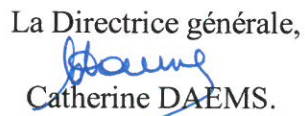 La Directrice générale,
Catherine DAEMS.